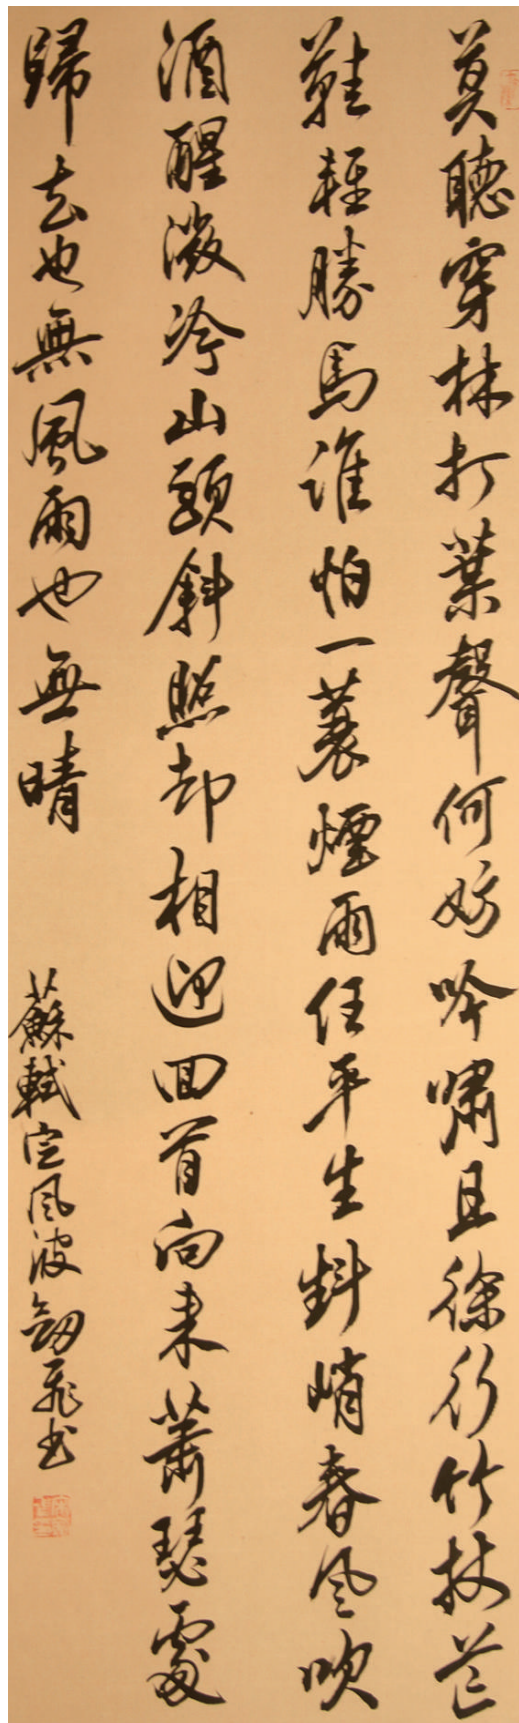 莫聽穿林打葉聲何妨吟嘯且徐行竹杖芒
鞋輕勝馬誰怕一蓑煙雨任平生料峭春風吹
酒醒微冷山頭斜照却相迎回首向来蕭瑟處
歸去也無風雨也無晴
蘇軾定風波劒飛书